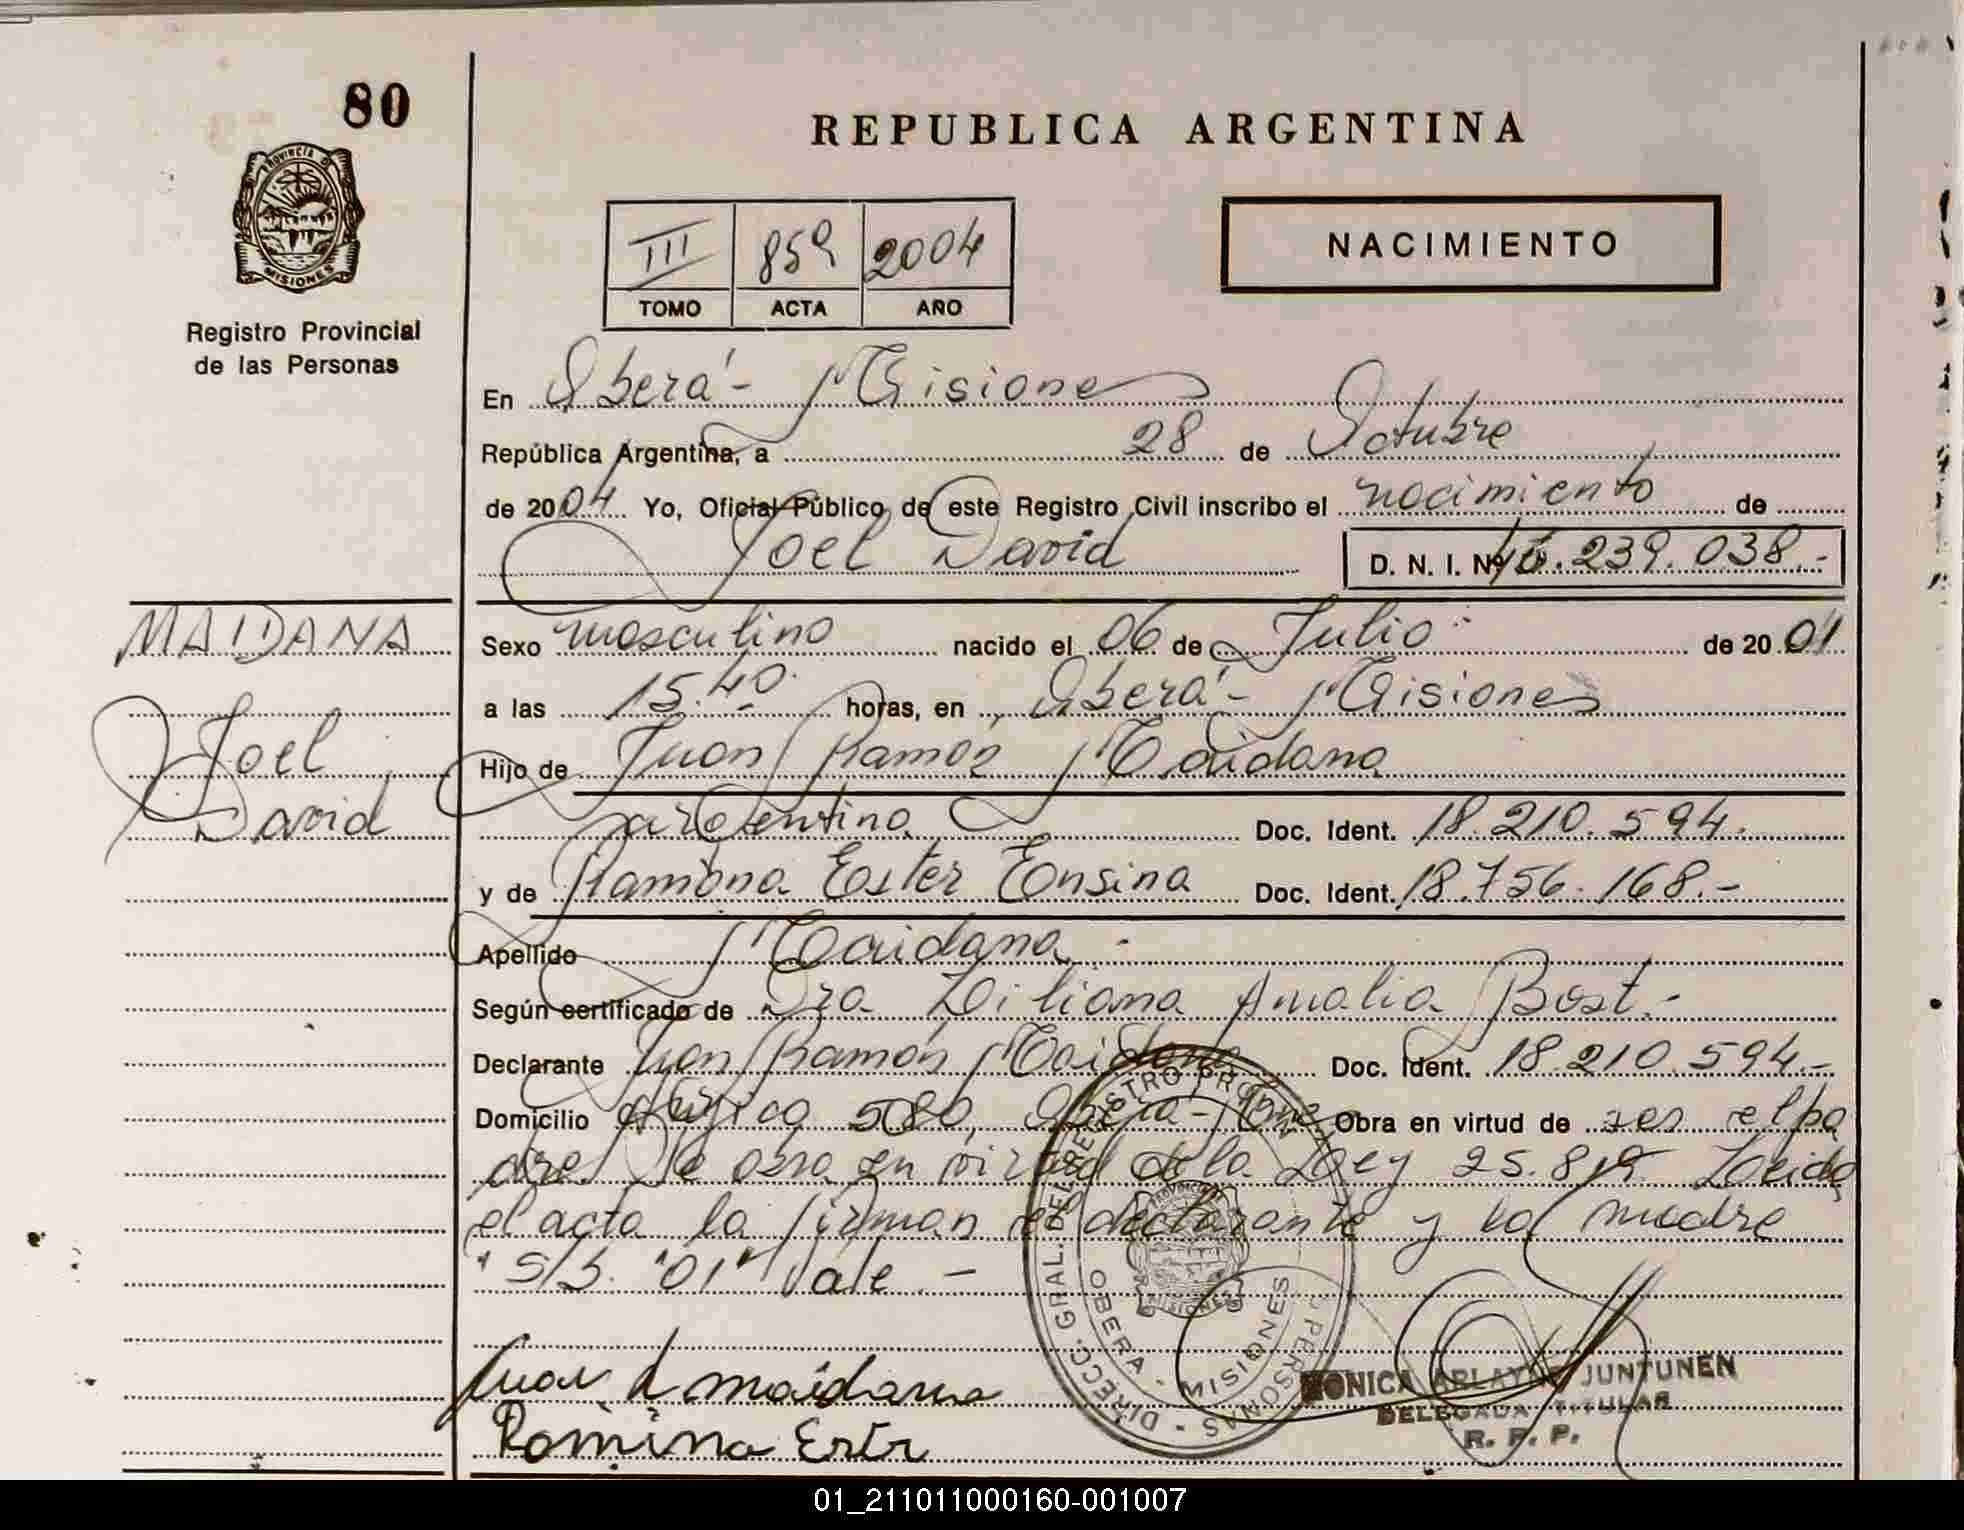 80
REPUBLICA ARGENTINA
PROVINCIA D MISIONES
III 859 2004
TOMO ACTA AÑO
NACIMIENTO
Registro Provincial
de las Personas
En Oberá - Misiones
República Argentina, a 28 de Octubre
de 2004 Yo, Oficial Público de este Registro Civil inscribo el nacimiento de
Joel David D. N. I. Nº 239.038.-
MAIDANA
Sexo masculino nacido el 06 de Julio de 2001
a las 15.40 horas, en Oberá - Misiones
Joel
Hijo de Juan Ramón Maidana
David
argentino Doc. Ident. 18.210.594.
y de Ramona Ester Ensina Doc. Ident. 18.756.168.-
Apellido Maidana -
Según certificado de Dra Liliana Amalia Bost.-
Declarante Juan Ramón Maidana Doc. Ident. 18.210.594.-
Domicilio 580, Oberá - Mnes Obra en virtud de ser el pa
dre. Se obra en virtud de la Ley 25.819. Leida
el acta la firman el declarante y la madre
"S/b. "01" Vale. -
DIRECC. GRAL. DEL REGISTRO PROV. PERSONAS
OBERA - MISIONES
MISIONES
Juan R maidana
MONICA JUNTUNEN
DELEGADA TITULAR
R. P. P.
Romina Ester
01_211011000160-001007